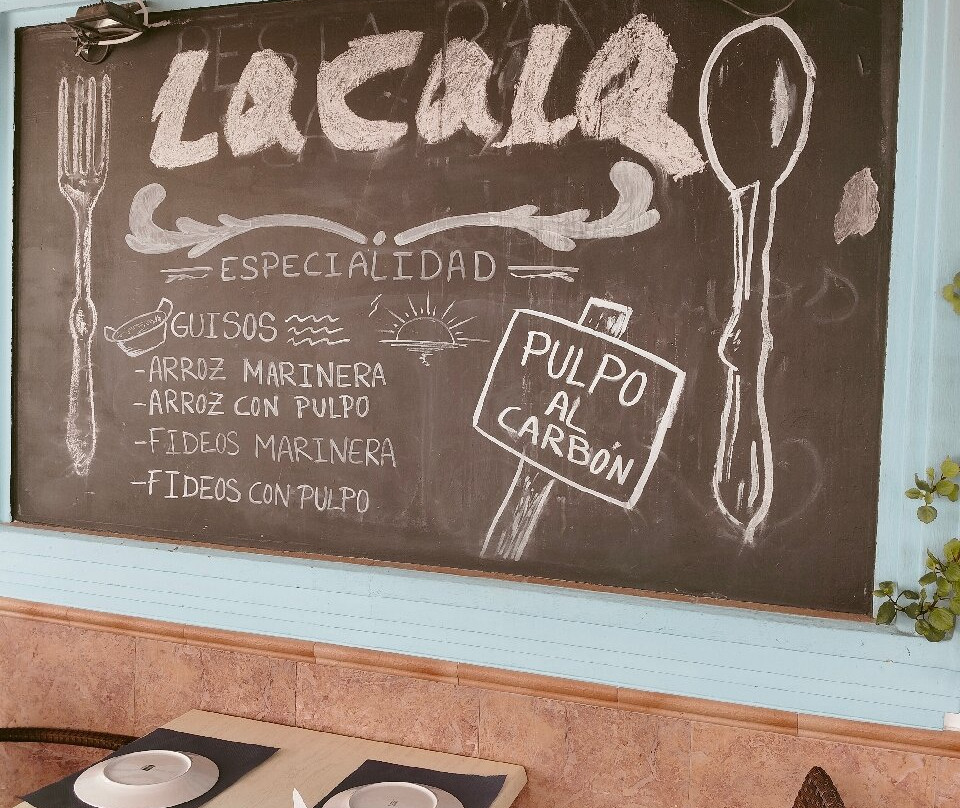 La Cala
ESPECIALIDAD
GUISOS
-ARROZ MARINERA
-ARROZ CON PULPO
-FIDEOS MARINERA
-FIDEOS CON PULPO
PULPO
AL
CARBÓN